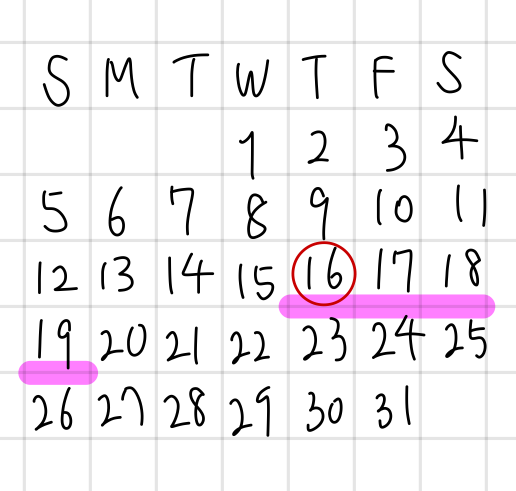 S M T W T F S
1 2 3 4
5 6 7 8 9 10 11
12 13 14 15 16 17 18
19 20 21 22 23 24 25
26 27 28 29 30 31